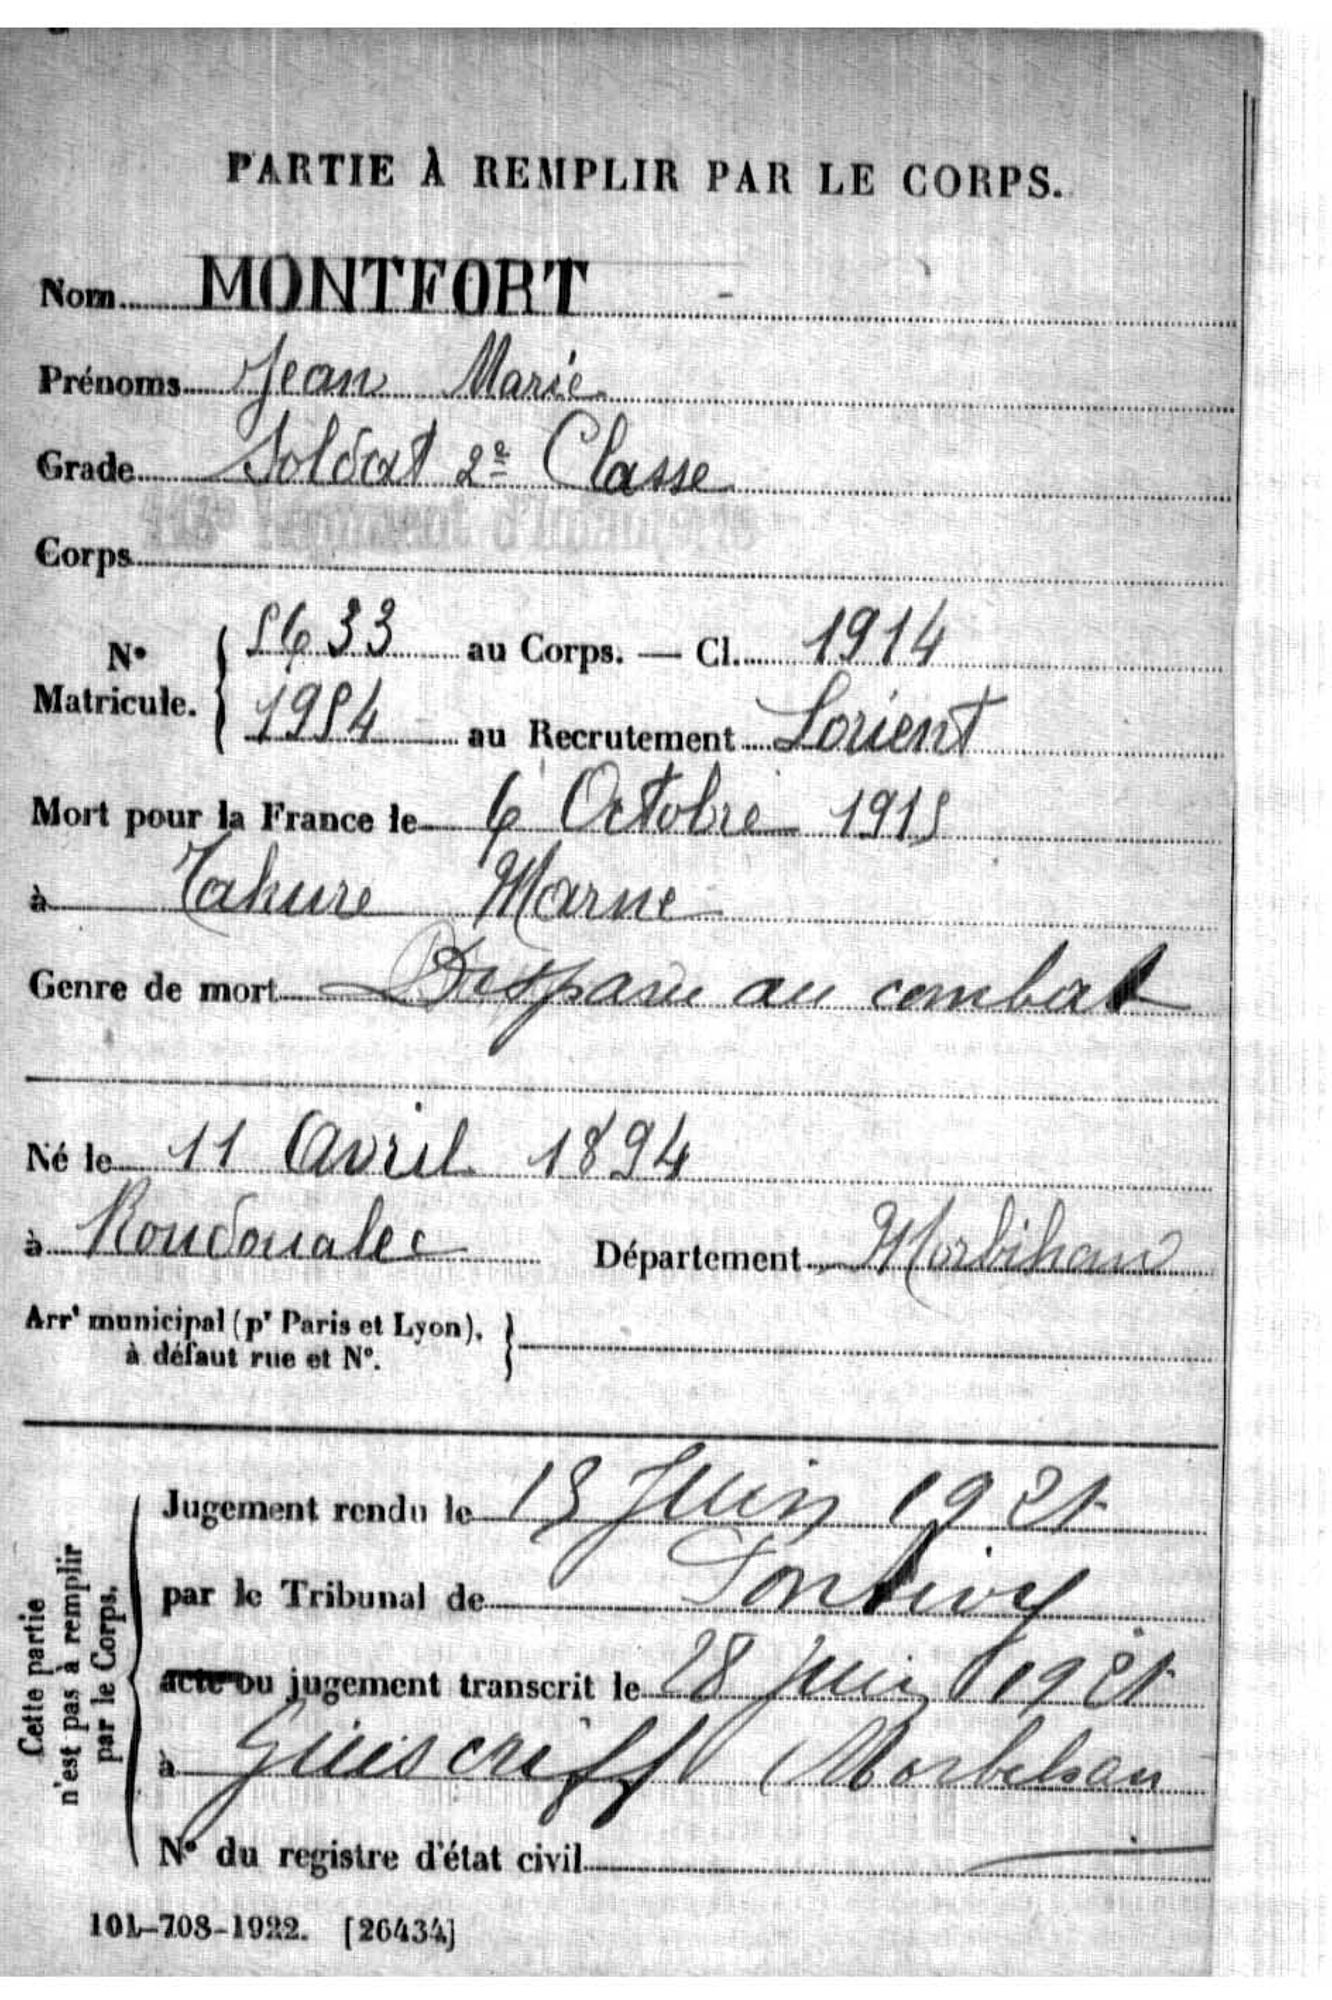 PARTIE À REMPLIR PAR LE CORPS.
Nom MONTFORT
Prénoms Jean Marie
Grade Soldat 2e Classe
Corps
No Matricule. { 5633 au Corps. — Cl. 1914
1954 au Recrutement Lorient
Mort pour la France le 6 Octobre 1915
à Tahure Marne
Genre de mort Disparu au combat
Né le 11 Avril 1894
à Roudouallec Département Morbihan
Arrt municipal (pr Paris et Lyon), }
à défaut rue et No.
Cette partie
n'est pas à remplir
par le Corps.
Jugement rendu le 15 Juin 1921
par le Tribunal de Pontivy
acte ou jugement transcrit le 28 Juin 1921
à Guiscriff Morbihan
No du registre d'état civil
101-708-1922. [26434]